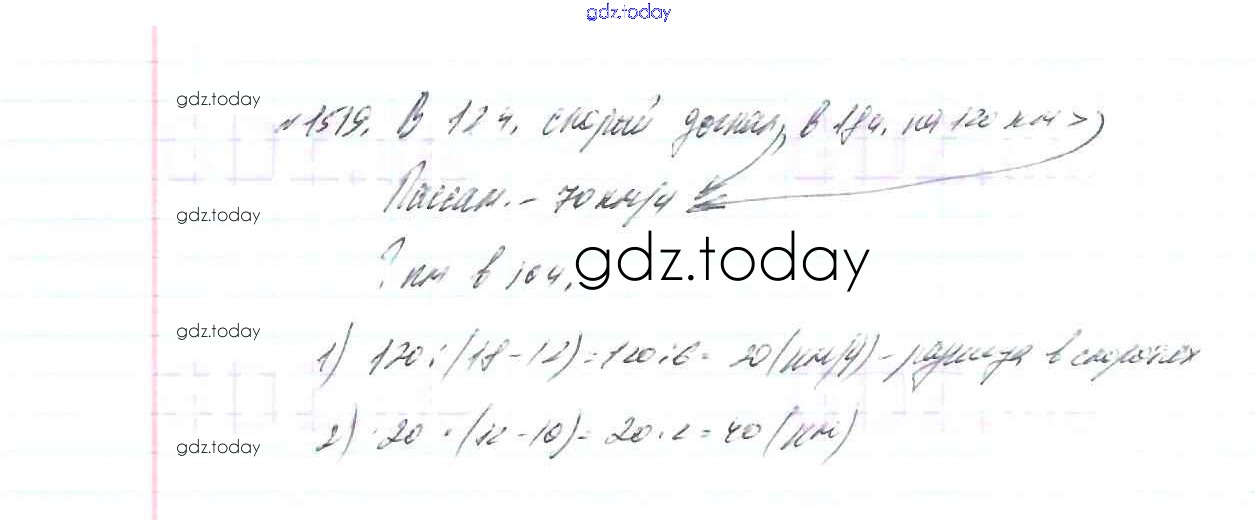 gdz.today
gdz.today
№1519. В 12 ч. скорый догнал, в 18ч. на 120 км >
gdz.today
Пассаж. - 70 км/ч
? км в 10 ч.
gdz.today
gdz.today
1) 120 : (18 - 12) = 120 : 6 = 20 (км/ч) - разница в скоростях
2) 20 · (12 - 10) = 20 · 2 = 40 (км)
gdz.today